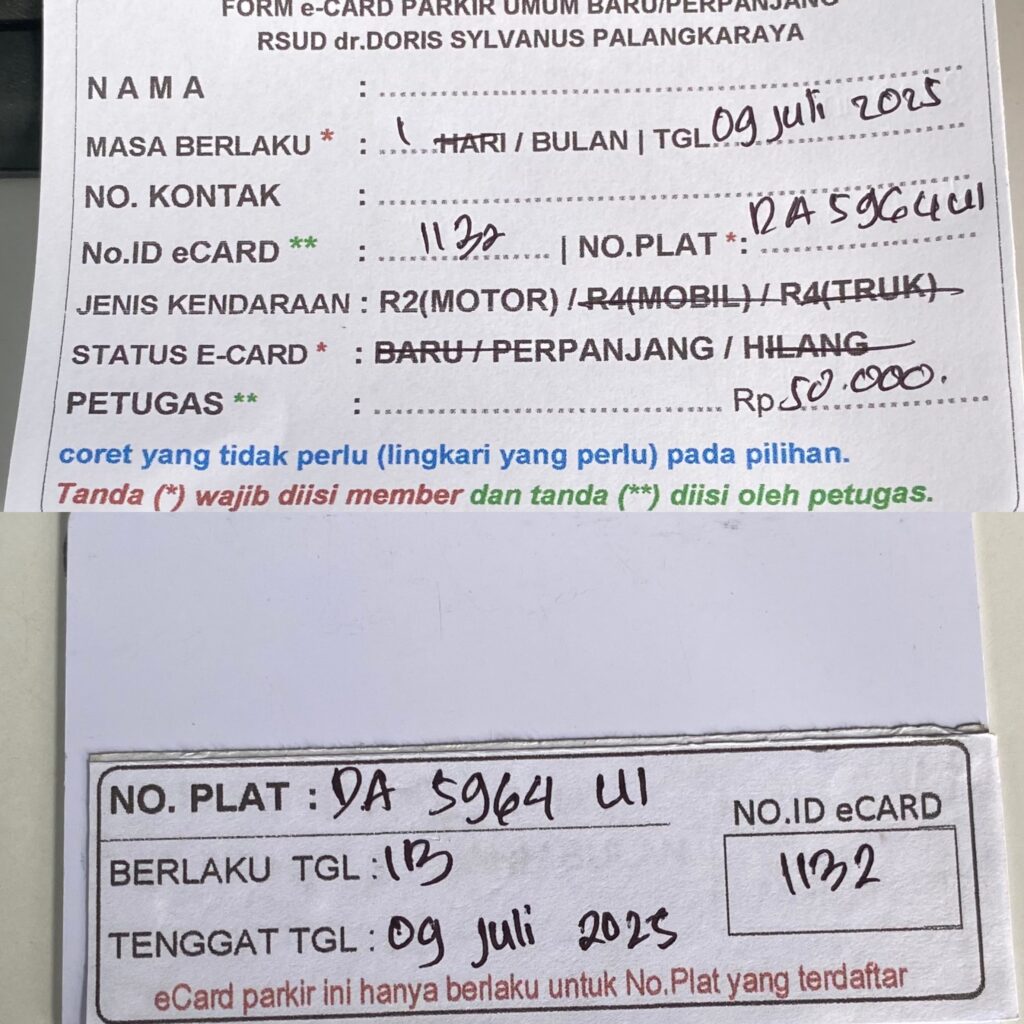 FORM e-CARD PARKIR UMUM BARU/PERPANJANG
RSUD dr.DORIS SYLVANUS PALANGKARAYA
N A M A :
MASA BERLAKU * : 1 HARI / BULAN | TGL. 09 Juli 2025
NO. KONTAK :
No.ID eCARD ** : 1132 | NO.PLAT *: DA 5964 UI
JENIS KENDARAAN : R2(MOTOR) / R4(MOBIL) / R4(TRUK)
STATUS E-CARD * : BARU / PERPANJANG / HILANG
PETUGAS ** : Rp 50.000.
coret yang tidak perlu (lingkari yang perlu) pada pilihan.
Tanda (*) wajib diisi member dan tanda (**) diisi oleh petugas.
NO. PLAT : DA 5964 UI
NO.ID eCARD
BERLAKU TGL : 1B
1132
TENGGAT TGL : 09 Juli 2025
eCard parkir ini hanya berlaku untuk No.Plat yang terdaftar